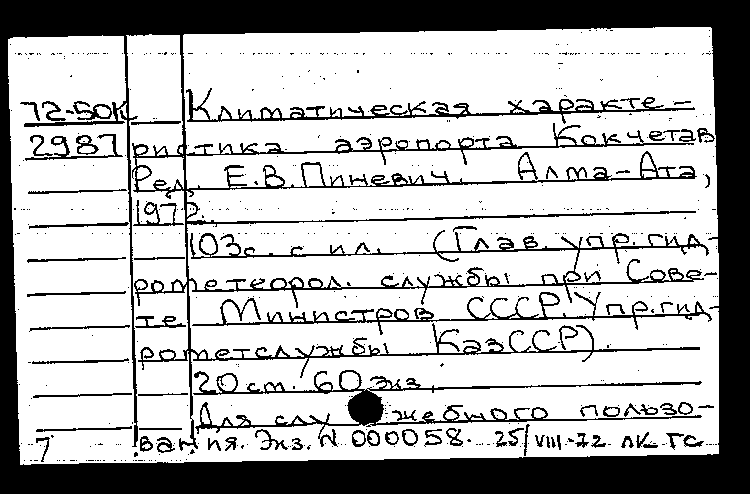 72-50К Климатическая характе-
2987 ристика аэропорта Кокчетав
Ред. Е.В.Пиневич. Алма-Ата,
1972.
103с. с ил. (Глав. упр. гид-
рометеорол. службы при Сове-
те Министров СССР. Упр. гид-
рометслужбы КазССР).
20 см. 60 экз.
Для служебного пользо-
7 вания. Экз. N 000058. 25/VIII-72 ЛК ГС